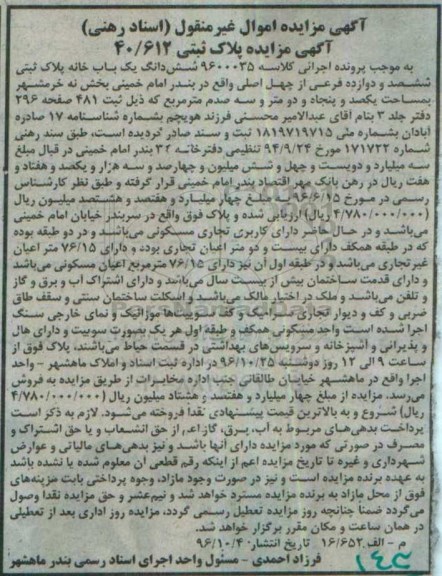 آگهی مزایده اموال غیرمنقول (اسناد رهنی)
آگهی مزایده پلاک ثبتی ۴۰/۶۱۲
به موجب پرونده اجرائی کلاسه ۹۶۰۰۰۳۵ شش‌دانگ یک باب خانه پلاک ثبتی
ششصد و دوازده فرعی از چهل اصلی واقع در بندر امام خمینی بخش نه خرمشهر
بمساحت یکصد و پنجاه و دو متر و سه صدم مترمربع که ذیل ثبت ۴۸۱ صفحه ۲۹۶
دفتر جلد ۳ بنام آقای عبدالامیر محسنی فرزند هویجم بشماره شناسنامه ۱۷ صادره
آبادان بشماره ملی ۱۸۱۹۷۱۹۷۱۵ ثبت و سند صادر گردیده است، طبق سند رهنی
شماره ۱۷۱۷۲۲ مورخ ۹۴/۹/۲۴ تنظیمی دفترخانه ۳۲ بندر امام خمینی در قبال مبلغ
سه میلیارد و دویست و چهل و شش میلیون و چهارصد و سه هزار و یکصد و هفتاد و
هفت ریال در رهن بانک مهر اقتصاد بندر امام خمینی قرار گرفته و طبق نظر کارشناس
رسمی در مورخ ۹۶/۶/۱۵ به مبلغ چهار میلیارد و هفتصد و هشتصد میلیون ریال
(۴/۷۸۰/۰۰۰/۰۰۰ ریال) ارزیابی شده و پلاک فوق واقع در سربندر خیابان امام خمینی
می‌باشد و در حال حاضر دارای کاربری تجاری مسکونی می‌باشد و در دو طبقه بوده
که در طبقه همکف دارای بیست و دو متر اعیان تجاری بوده و دارای ۷۶/۱۵ متر اعیان
غیر تجاری می‌باشد و در طبقه اول آن نیز دارای ۷۶/۱۵ مترمربع اعیان مسکونی می‌باشد
و دارای قدمت ساختمان بیش از بیست سال می‌باشد و دارای اشتراک آب و برق و گاز
و تلفن می‌باشد و ملک در اختیار مالک می‌باشد و اسکلت ساختمان سنتی و سقف طاق
ضربی و کف و دیوار تجاری سرامیک و کف سرویسها موزائیک و نمای خارجی سنگ
اجرا شده است واحد مسکونی همکف و طبقه اول هر یک بصورت سوییت و دارای هال
و پذیرائی و آشپزخانه و سرویس‌های بهداشتی در قسمت حیاط می‌باشند، پلاک فوق از
ساعت ۹ الی ۱۲ روز دوشنبه ۹۶/۱۰/۲۵ در اداره ثبت اسناد و املاک ماهشهر - واحد
اجرا واقع در ماهشهر خیابان طالقانی جنب اداره مخابرات از طریق مزایده به فروش
می‌رسد. مزایده از مبلغ چهار میلیارد و هفتصد و هشتاد میلیون ریال (۴/۷۸۰/۰۰۰/۰۰۰
ریال) شروع و به بالاترین قیمت پیشنهادی نقدا فروخته می‌شود. لازم به ذکر است
پرداخت بدهی‌های مربوط به آب، برق، گاز اعم از حق انشعاب و یا حق اشتراک و
مصرف در صورتی که مورد مزایده دارای آنها باشد و نیز بدهی‌های مالیاتی و عوارض
شهرداری و غیره تا تاریخ مزایده اعم از اینکه رقم قطعی آن معلوم شده یا نشده باشد
به عهده برنده مزایده است و نیز در صورت وجود مازاد، وجوه پرداختی بابت هزینه‌های
فوق از محل مازاد به برنده مزایده مسترد خواهد شد و نیم‌عشر و حق مزایده نقدا وصول
می‌گردد ضمنا چنانچه روز مزایده تعطیل رسمی گردد، مزایده روز اداری بعد از تعطیلی
در همان ساعت و مکان مقرر برگزار خواهد شد.
م - الف ۱۶/۶۵۲ تاریخ انتشار ۹۶/۱۰/۴
فرزاد احمدی - مسئول واحد اجرای اسناد رسمی بندر ماهشهر